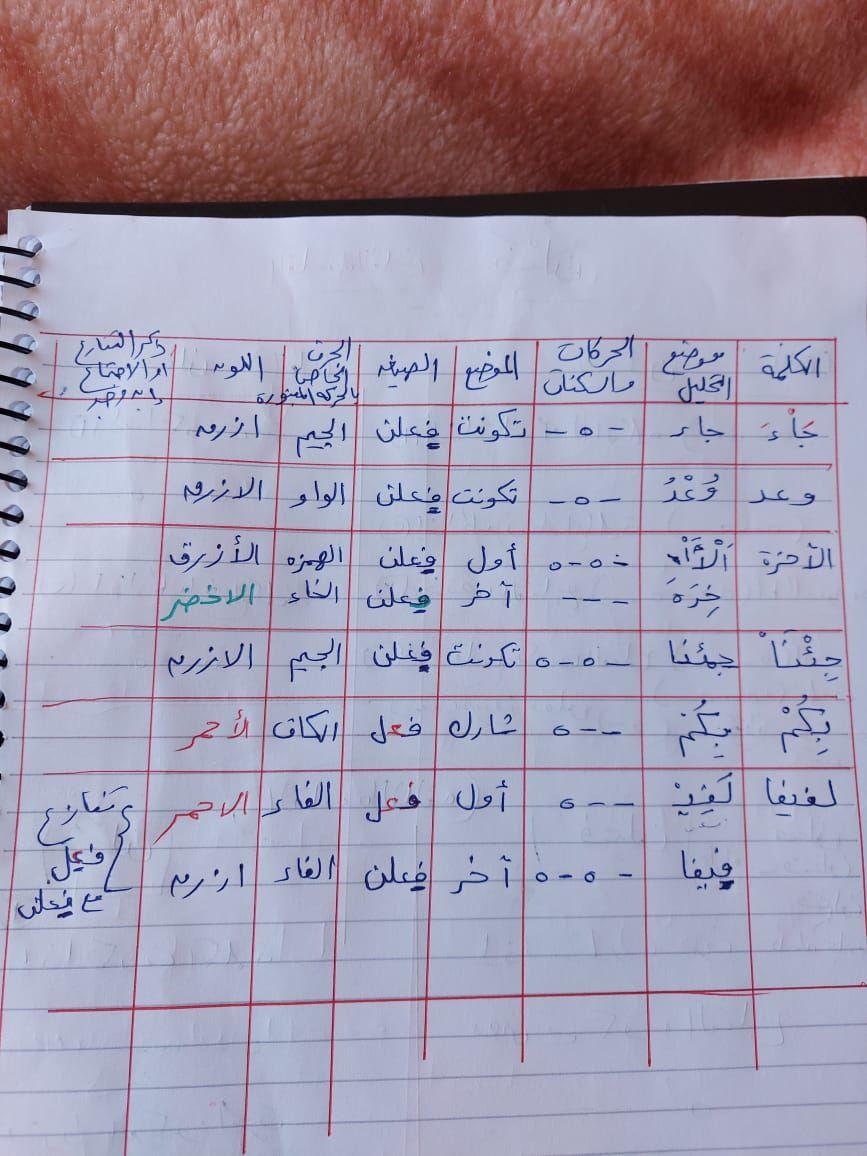 الكلمة موضع التحليل الحركات والسكنات الموضع الصيغه الحرف الخاص بالحركة المبتورة اللون ذكر التنازع او الاجتماع ان وجد
جَاْءَ جاء - ه - تكونت فعلن الجيم ازرق
وعد وُعْدُ - ه - تكونت فعلن الواو الازرق
الآخرة اَلْأَاْ - ه - ه أول فعلن الهمزه الأزرق
خِرَةَ - - - آخر فعلن الخاء الاخضر
جِئْنَاْ جئنا - ه - ه تكونت فعلن الجيم الازرق
بِكُمْ بِكُمْ - - ه شارك فعل الكاف الأحمر
لفيفا لَفِيْ - - ه أول فعل الفاء الاحمر تنازع
فيفا - ه - ه آخر فعلن الفاء ازرق فعل
مع فعلن